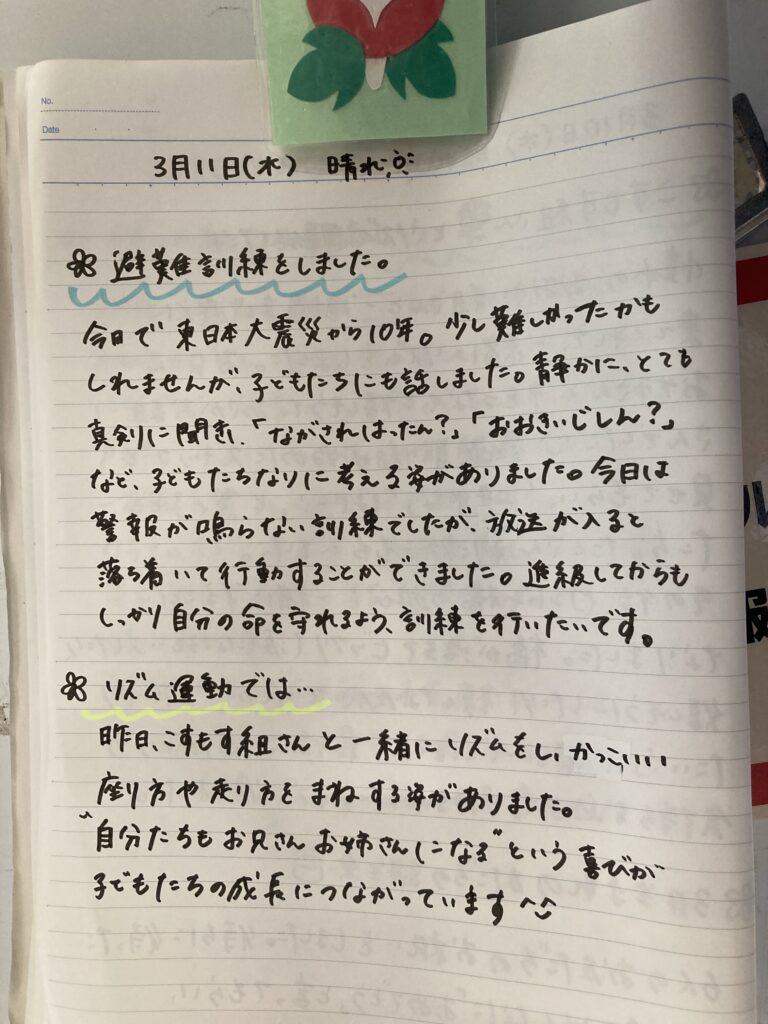 No.
Date
3月11日(水) 晴れ
避難訓練をしました。
今日で東日本大震災から10年。少し難しかったかも
しれませんが、子どもたちにも話しました。静かに、とても
真剣に聞き、「ながされはったん?」「おおきいじしん?」
など、子どもたちなりに考える姿がありました。今日は
警報が鳴らない訓練でしたが、放送が入ると
落ち着いて行動することができました。進級してからも
しっかり自分の命を守れるよう、訓練を行いたいです。
リズム運動では…
昨日、こすもす組さんと一緒にリズムをし、かっこいい
座り方や走り方をまねする姿がありました。
"自分たちもお兄さんお姉さんになる"という喜びが
子どもたちの成長につながっています^^